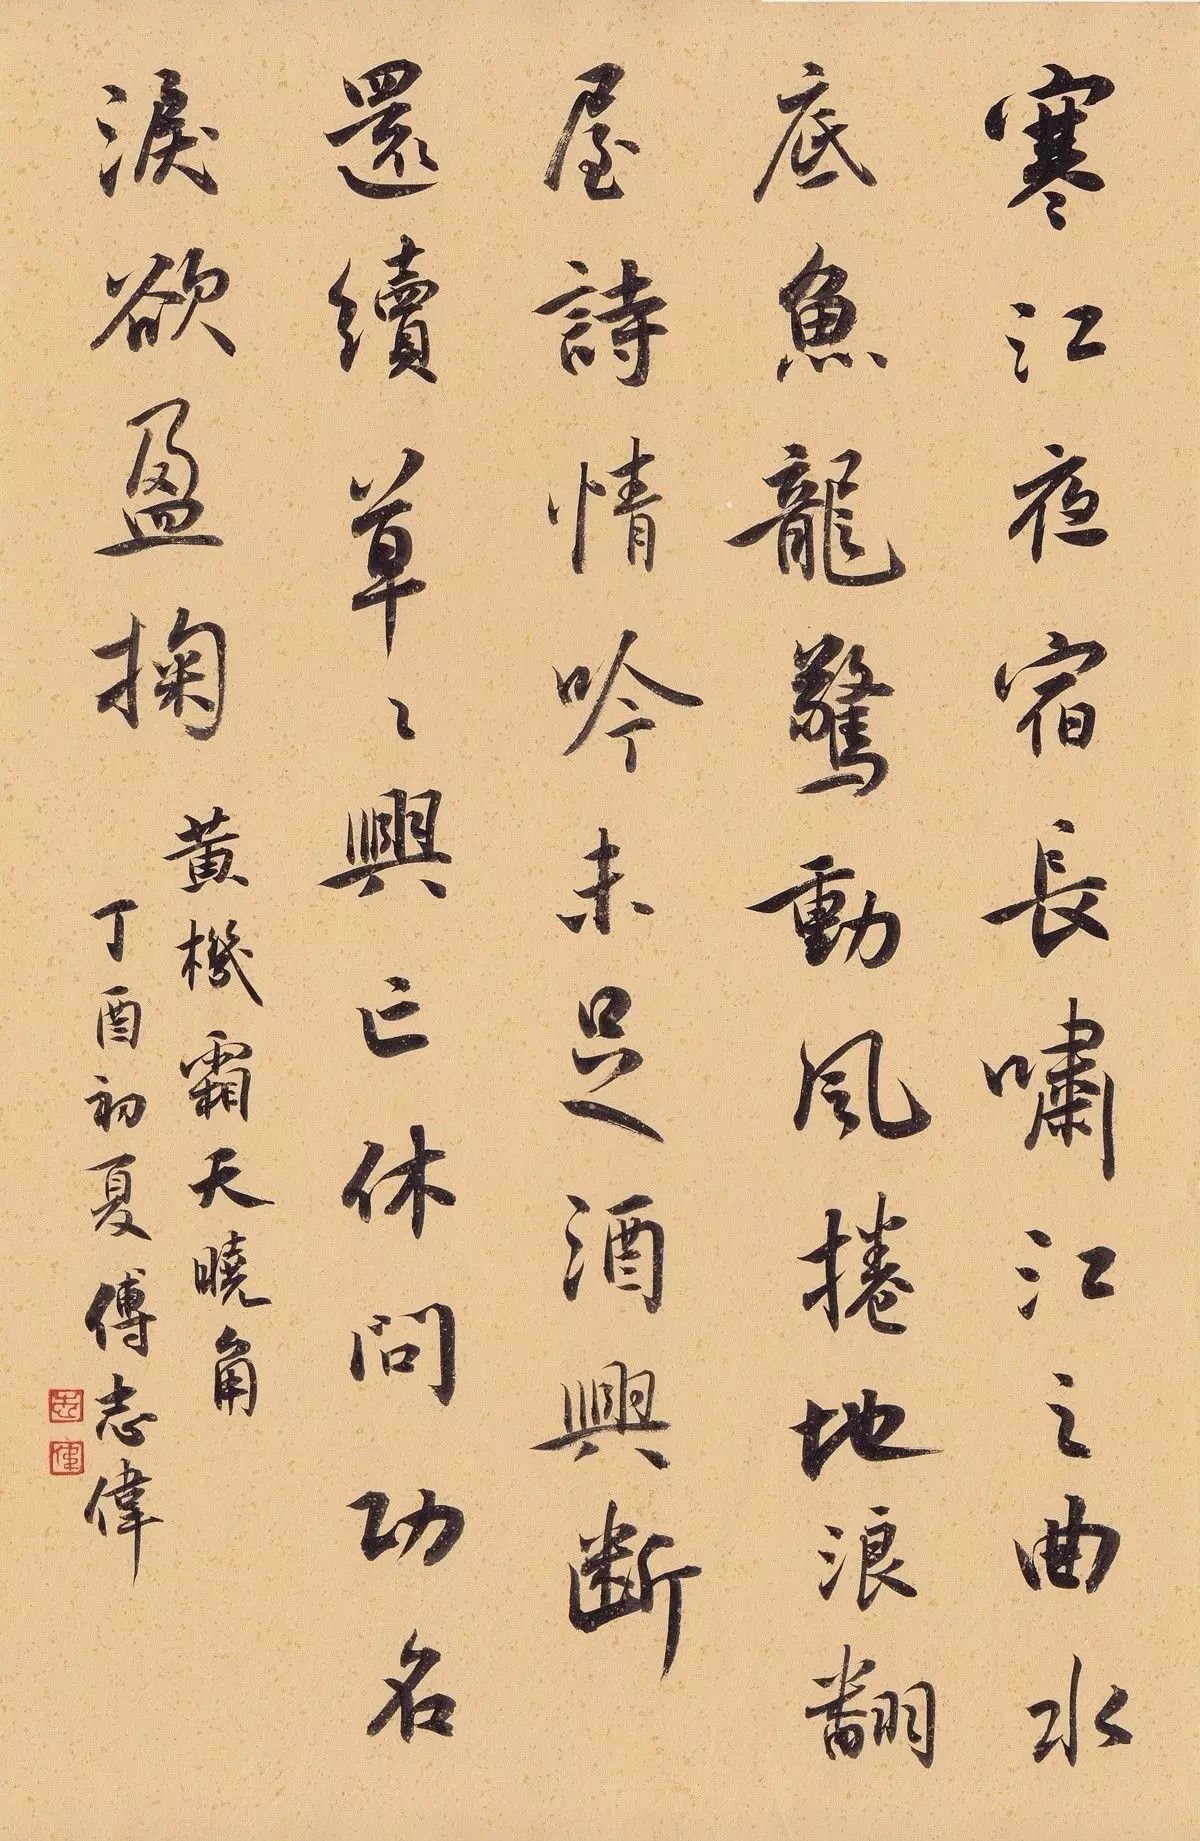 寒江夜宿長嘯江之曲水
底魚龍驚動風捲地浪翻
屋詩情吟未足酒興斷
還續草〻興亡休問功名
淚欲盈掬
黄機霜天曉角
丁酉初夏傅志偉
志
偉